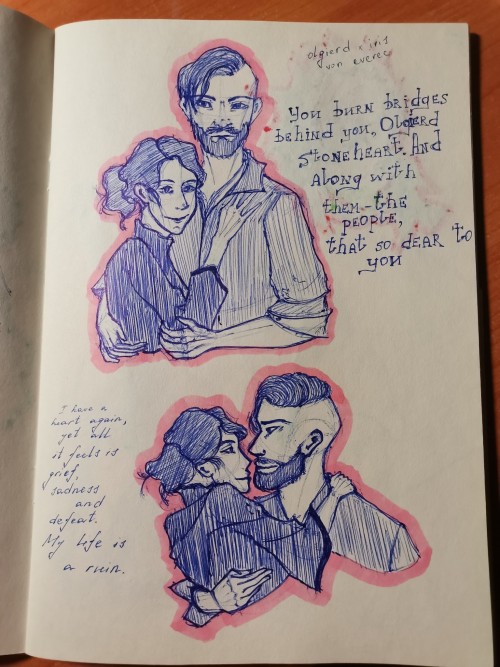 olgierd & iris
von everec
You burn bridges
behind you, Olgierd
Stoneheart. And
along with
them - the
people,
that so dear to
you
I have a
heart again,
yet all
it feels is
grief,
sadness
and
defeat.
My life is
a ruin.